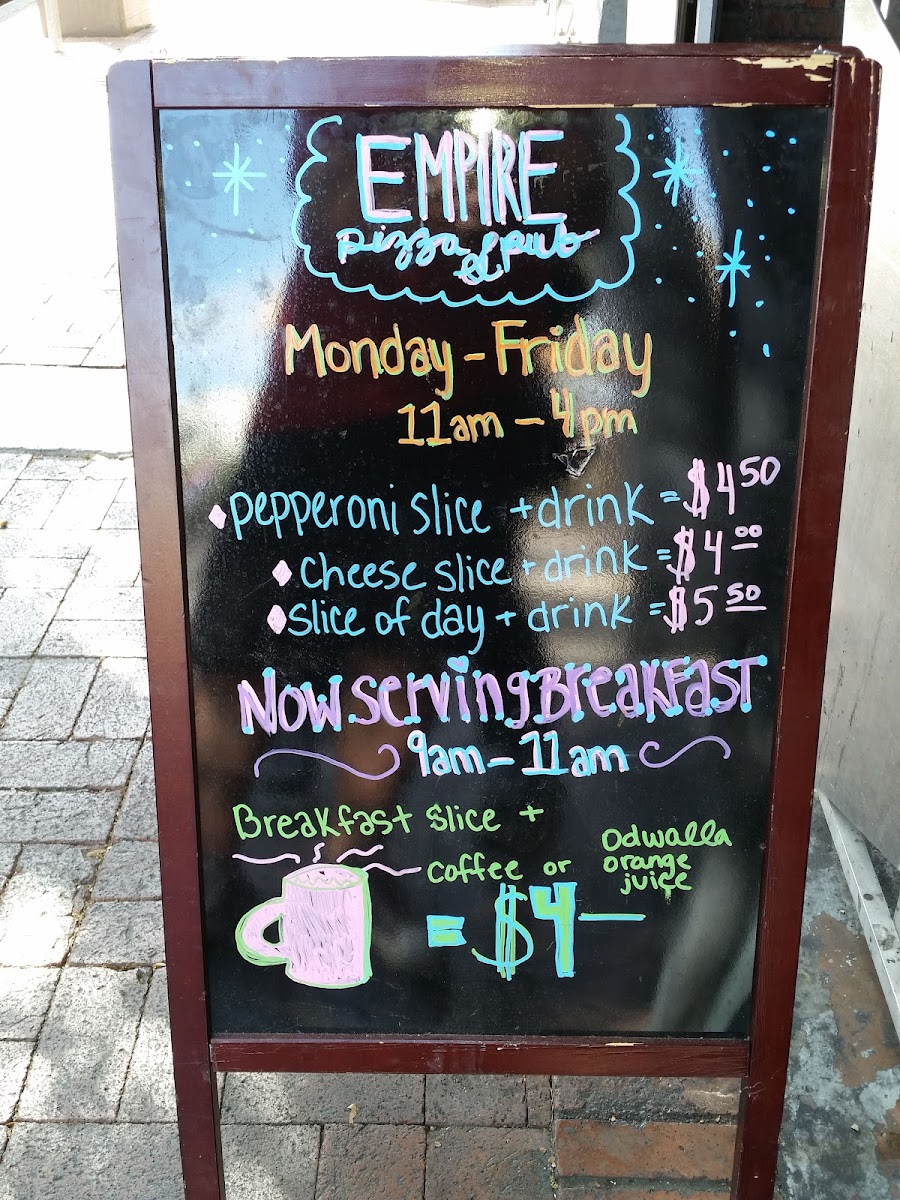 EMPIRE
pizza & pub
Monday - Friday
11am - 4pm
pepperoni slice + drink = $4 50
cheese slice + drink = $4 00
slice of day + drink = $5 50
Now Serving Breakfast
9am - 11am
Breakfast slice +
coffee or Odwalla orange juice
= $4 —